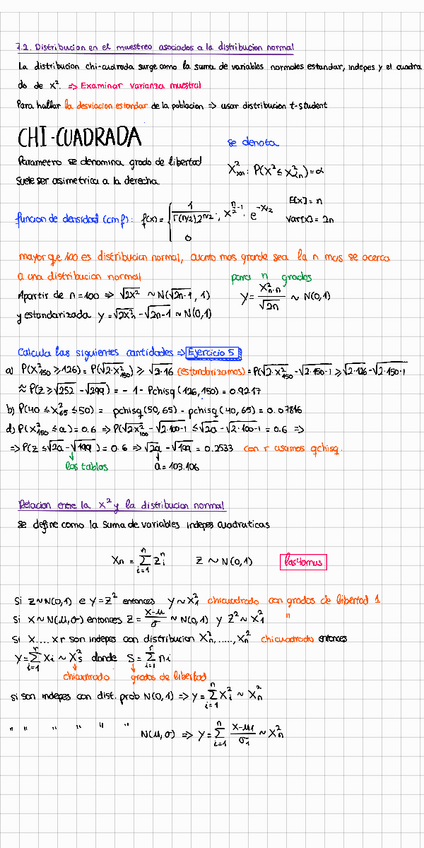 7.2. Distribucion en el muestreo asociados a la distribucion normal
La distribucion chi-cuadrada surge como la suma de variables normales estandar, indepes y el cuadra
do de X². => Examinar varianza muestral
Para hallar la desviacion estandar de la poblacion => usar distribucion t-student
CHI-CUADRADA
se denota
Parametro se denomina grado de libertad
X²n: P(X² ≤ X²n) = α
Suele ser asimetrica a la derecha
E[X] = n
funcion de densidad (cmf): f(x) = { 1/(Γ(n/2).2^(n/2)) · x^(n/2-1) · e^(-x/2)
Var[X] = 2n
0
mayor que 100 es distribucion normal, cuanto mas grande sea la n mas se acerca
a una distribucion normal
para n grados
Apartir de n=100 => √2X² ~ N(√2n-1, 1)
Y = (X²n - n)/√2n ~ N(0,1)
y estandarizada Y = √2X²n - √2n-1 ~ N(0,1)
Calcula las siguientes cantidades => Ejercicio 5
a) P(X²150 ≥ 126) = P(√2·X²150 ≥ √2·126 (estandarizamos) = P(√2·X²150 - √2·150-1 ≥ √2·126 - √2·150-1
≈ P(Z ≥ √252 - √299) = - 1 - Pchisq(126,150) = 0.9217
b) P(40 ≤ X²65 ≤ 50) = pchisq(50,65) - pchisq(40,65) = 0.07816
d) P(X²100 ≤ a) = 0.6 => P(√2X²100 - √2·100-1 ≤ √2a - √2·100-1 = 0.6 =>
=> P(Z ≤ √2a - √199) = 0.6 => √2a - √199 = 0.2533 con r usamos qchisq.
las tablas
a = 103.106
Relacion entre la X² y la distribucion normal
se define como la suma de variables indepes cuadraticas
Xn = Σ(i=1, n) Zi² Z ~ N(0,1)
Si Z~N(0,1) e Y=Z² entonces Y~X²1 chicuadrado con grados de libertad 1
Si X~N(μ,σ) entonces Z = (X-μ)/σ ~ N(0,1) y Z² ~ X²1 "
Si X....Xr son indepes con distribucion X²n,.....,X²n chicuadrado entonces
Y = Σ(i=1, r) Xi ~ X²s donde S = Σ(i=1, r) ni
chicuadrado grados de libertad
si son indepes con dist. prob N(0,1) => Y = Σ(i=1, n) Xi² ~ X²n
" " " " " " N(μ,σ) => Y = Σ(i=1, n) (X-μ1)/σ1 ~ X²n